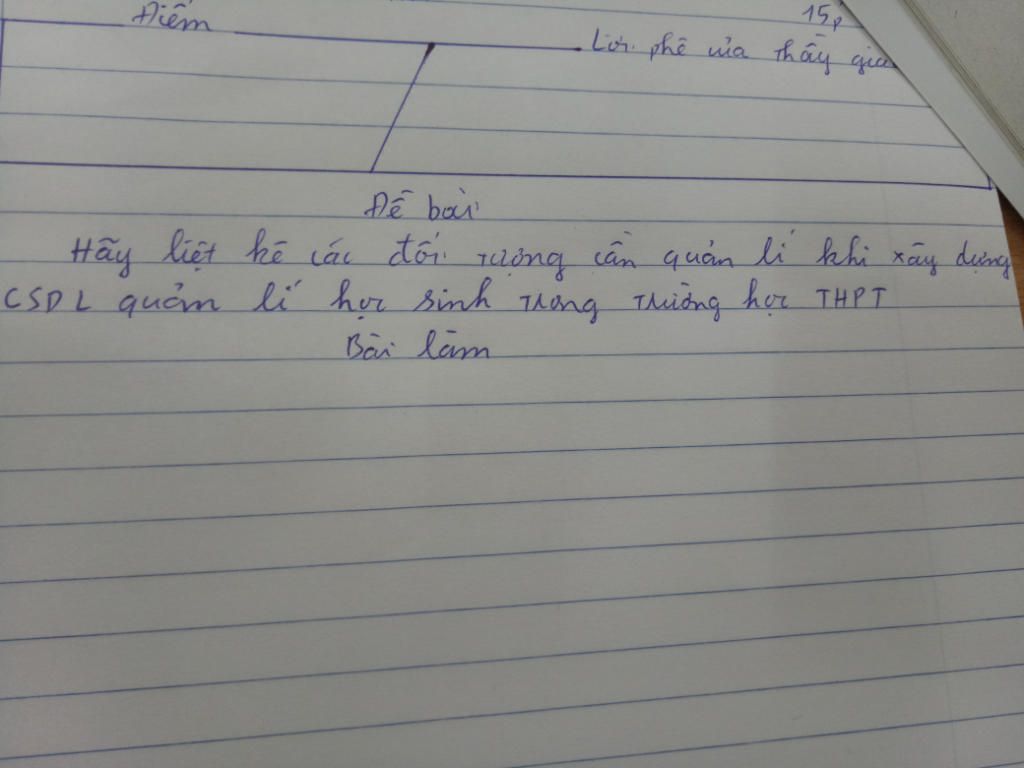 15p
Điểm
Lời phê của thầy giá
Đề bài
Hãy liệt kê các đối tượng cần quản lí khi xây dựng
CSDL quản lí học sinh trong trường học THPT
Bài làm